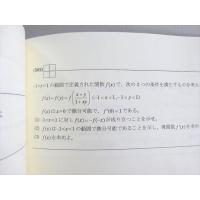 -1<x<1 の範囲で定義された関数 f(x) で，次の 2 つの条件を満たすものを考え
f(x)+f(y)=f((x+y)/(1+xy)) (-1<x<1, -1<y<1)
f(x) は x=0 で微分可能で， f'(0)=1 である。
(1) -1<x<1 に対し f(x)=-f(-x) が成り立つことを示せ。
(2) f(x) は -1<x<1 の範囲で微分可能であることを示し，導関数 f'(x) を求めよ。
(3) f(x) を求めよ。